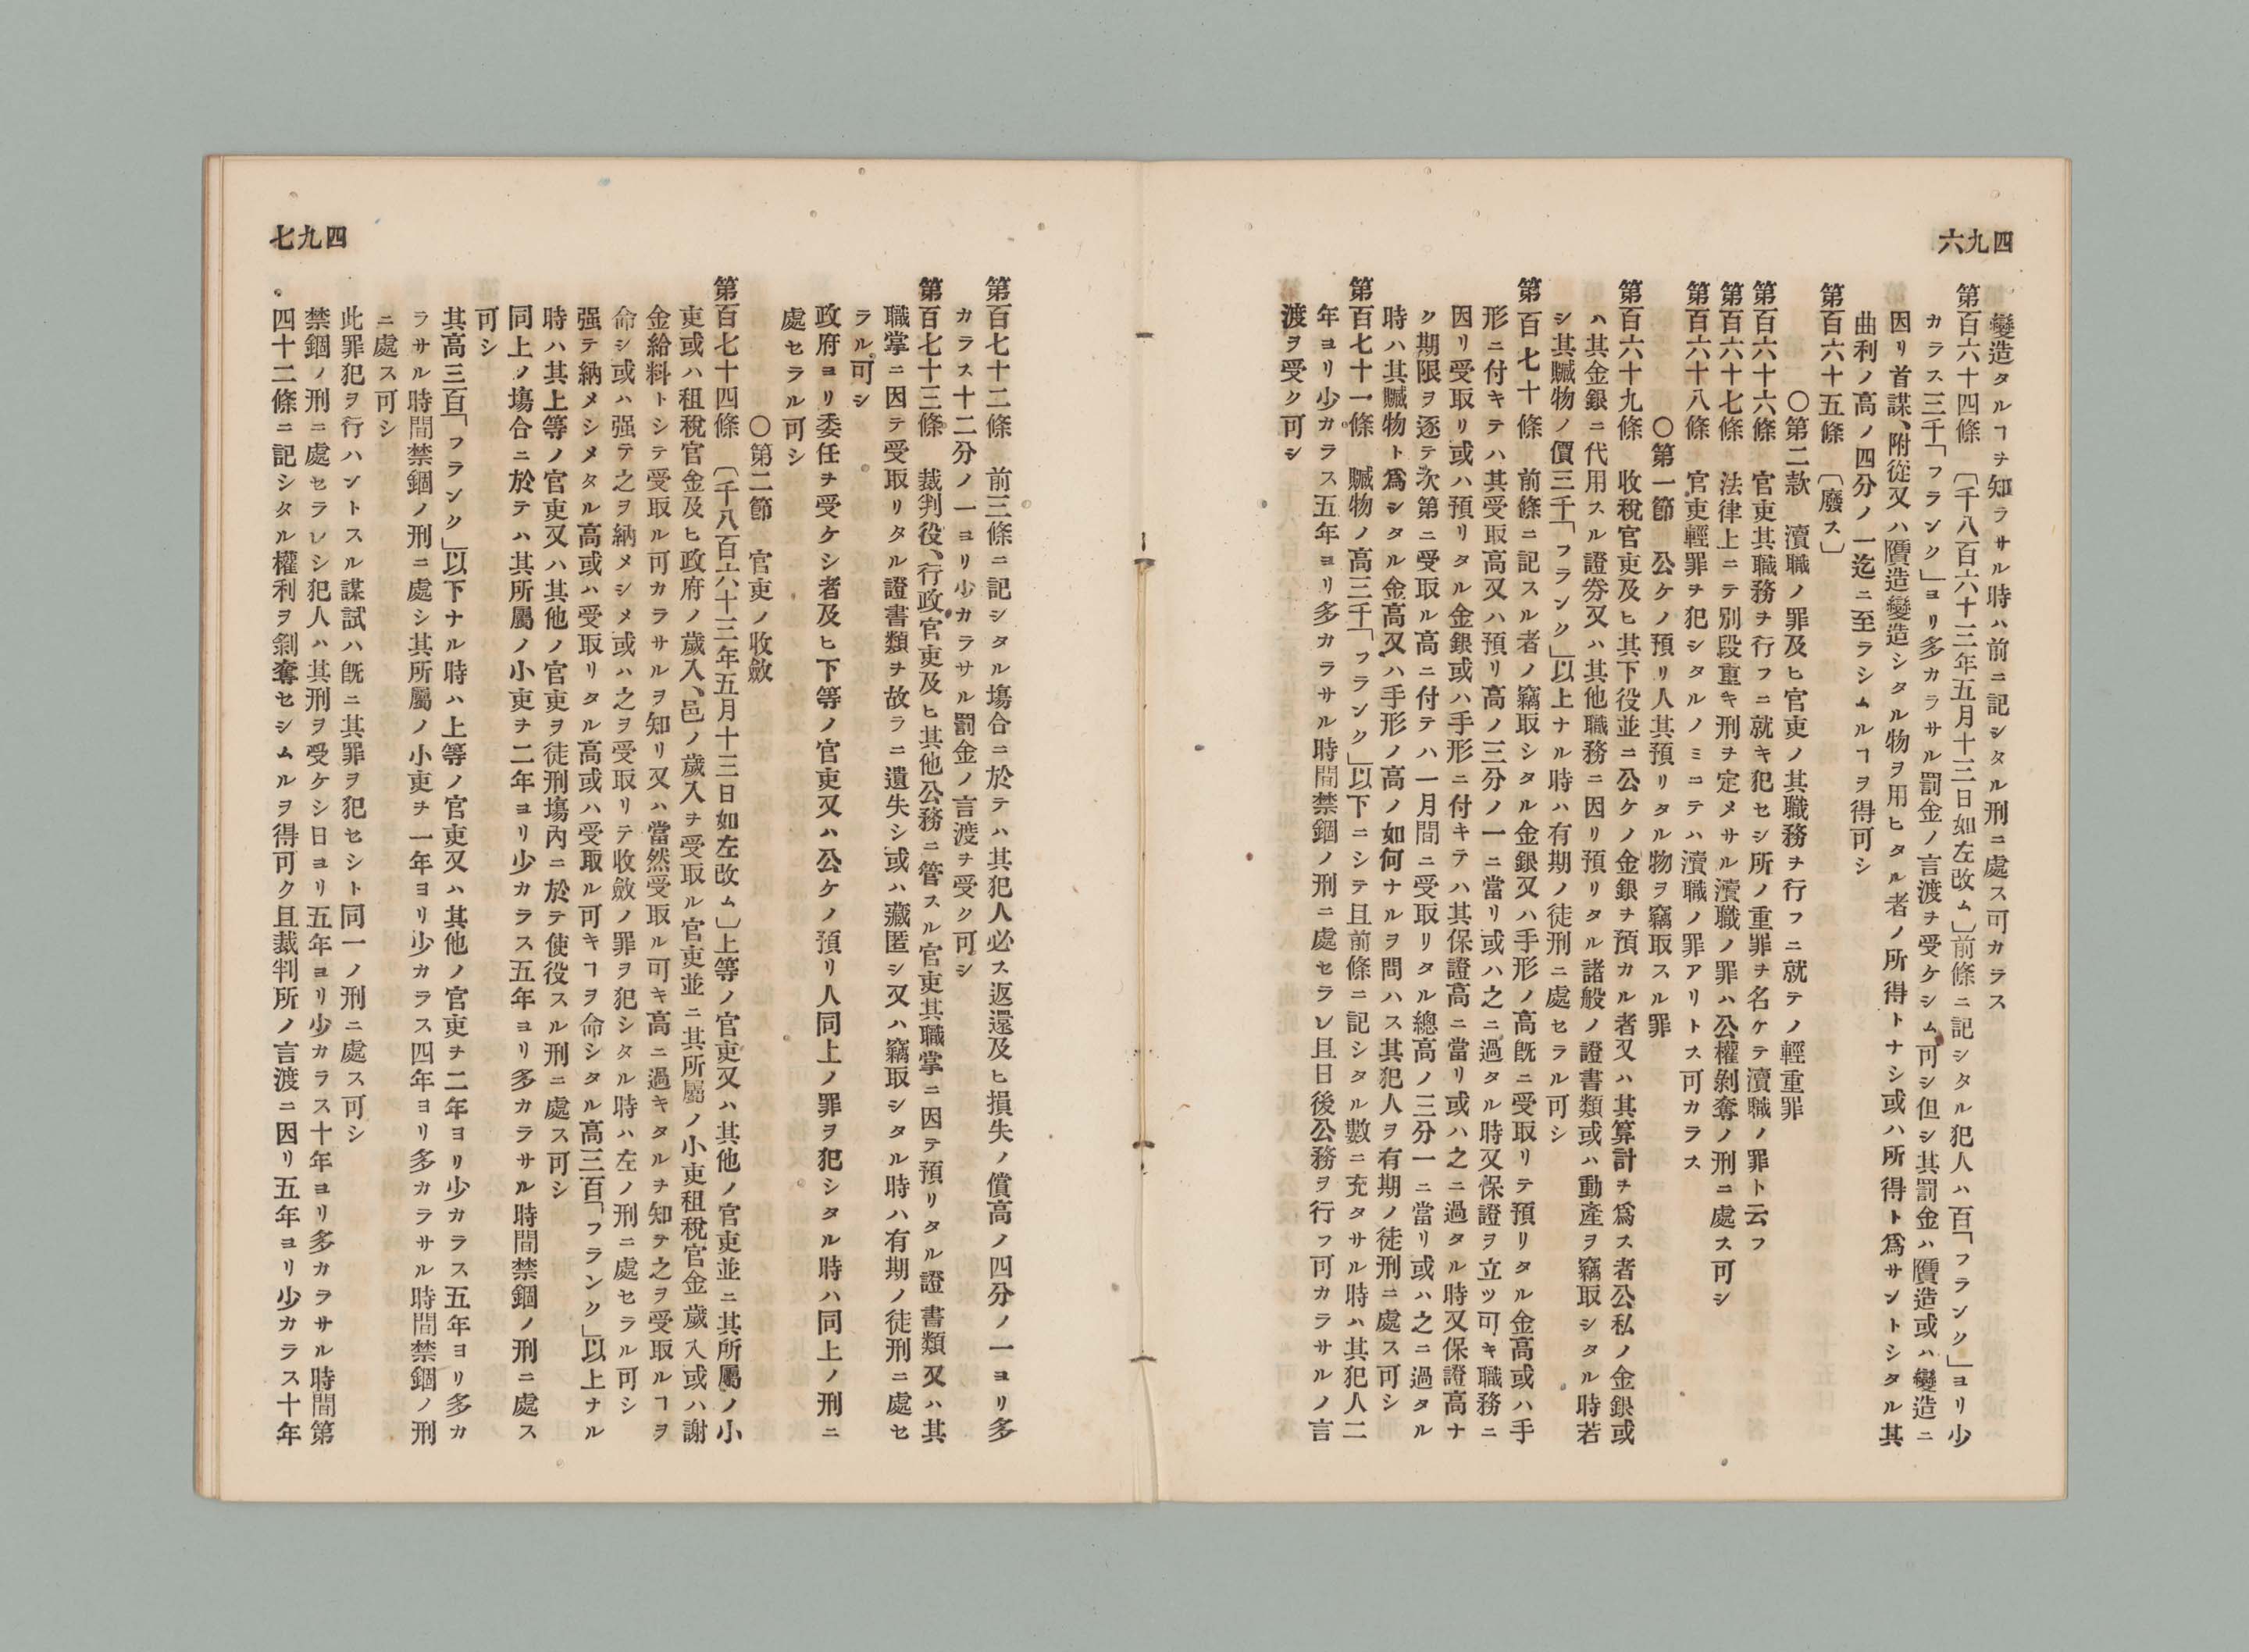 四九六
變造タルヿヲ知ラサル時ハ前ニ記シタル刑ニ處ス可カラス
第百六十四條 〔千八百六十三年五月十三日如左改ム〕前條ニ記シタル犯人ハ百「フランク」ヨリ少
カラス三千「フランク」ヨリ多カラサル罰金ノ言渡ヲ受ケシム可シ但シ其罰金ハ贋造或ハ變造ニ
因リ首謀、附從又ハ贋造變造シタル物ヲ用ヒタル者ノ所得トナシ或ハ所得ト爲サントシタル其
曲利ノ高ノ四分ノ一迄ニ至ラシムルヿヲ得可シ
第百六十五條 〔廢ス〕
〇第二款 瀆職ノ罪及ヒ官吏ノ其職務ヲ行フニ就テノ輕重罪
第百六十六條 官吏其職務ヲ行フニ就キ犯セシ所ノ重罪ヲ名ケテ瀆職ノ罪ト云フ
第百六十七條 法律上ニテ別段重キ刑ヲ定メサル瀆職ノ罪ハ公權剝奪ノ刑ニ處ス可シ
第百六十八條 官吏輕罪ヲ犯シタルノミニテハ瀆職ノ罪アリトス可カラス
〇第一節 公ケノ預リ人其預リタル物ヲ竊取スル罪
第百六十九條 收稅官吏及ヒ其下役並ニ公ケノ金銀ヲ預カル者又ハ其算計ヲ爲ス者公私ノ金銀或
ハ其金銀ニ代用スル證券又ハ其他職務ニ因リ預リタル諸般ノ證書類或ハ動產ヲ竊取シタル時若
シ其贓物ノ價三千「フランク」以上ナル時ハ有期ノ徒刑ニ處セラル可シ
第百七十條 前條ニ記スル者ノ竊取シタル金銀又ハ手形ノ高既ニ受取リテ預リタル金高或ハ手
形ニ付キテハ其受取高又ハ預リ高ノ三分ノ一ニ當リ或ハ之ニ過タル時又保證ヲ立ツ可キ職務ニ
因リ受取リ或ハ預リタル金銀或ハ手形ニ付キテハ其保證高ニ當リ或ハ之ニ過タル時又保證高ナ
ク期限ヲ逐テ次第ニ受取ル高ニ付テハ一月間ニ受取リタル總高ノ三分一ニ當リ或ハ之ニ過タル
時ハ其贓物ト爲シタル金高又ハ手形ノ高ノ如何ナルヲ問ハス其犯人ヲ有期ノ徒刑ニ處ス可シ
第百七十一條 贓物ノ高三千「フランク」以下ニシテ且前條ニ記シタル數ニ充タサル時ハ其犯人二
年ヨリ少カラス五年ヨリ多カラサル時間禁錮ノ刑ニ處セラレ且日後公務ヲ行フ可カラサルノ言
渡ヲ受ク可シ
四九七
第百七十二條 前三條ニ記シタル塲合ニ於テハ其犯人必ス返還及ヒ損失ノ償高ノ四分ノ一ヨリ多
カラス十二分ノ一ヨリ少カラサル罰金ノ言渡ヲ受ク可シ
第百七十三條 裁判役、行政官吏及ヒ其他公務ニ管スル官吏其職掌ニ因テ預リタル證書類又ハ其
職掌ニ因テ受取リタル證書類ヲ故ラニ遺失シ或ハ藏匿シ又ハ竊取シタル時ハ有期ノ徒刑ニ處セ
ラル可シ
政府ヨリ委任ヲ受ケシ者及ヒ下等ノ官吏又ハ公ケノ預リ人同上ノ罪ヲ犯シタル時ハ同上ノ刑ニ
處セラル可シ
〇第二節 官吏ノ收斂
第百七十四條 〔千八百六十三年五月十三日如左改ム〕上等ノ官吏又ハ其他ノ官吏並ニ其所屬ノ小
吏或ハ租稅官金及ヒ政府ノ歲入、邑ノ歲入ヲ受取ル官吏並ニ其所屬ノ小吏租稅官金歲入或ハ謝
金給料トシテ受取ル可カラサルヲ知リ又ハ當然受取ル可キ高ニ過キタルヲ知テ之ヲ受取ルヿヲ
命シ或ハ强テ之ヲ納メシメ或ハ之ヲ受取リテ收斂ノ罪ヲ犯シタル時ハ左ノ刑ニ處セラル可シ
强テ納メシメタル高或ハ受取リタル高或ハ受取ル可キヿヲ命シタル高三百「フランク」以上ナル
時ハ其上等ノ官吏又ハ其他ノ官吏ヲ徒刑塲內ニ於テ使役スル刑ニ處ス可シ
同上ノ塲合ニ於テハ其所屬ノ小吏ヲ二年ヨリ少カラス五年ヨリ多カラサル時間禁錮ノ刑ニ處ス
可シ
其高三百「フランク」以下ナル時ハ上等ノ官吏又ハ其他ノ官吏ヲ二年ヨリ少カラス五年ヨリ多カ
ラサル時間禁錮ノ刑ニ處シ其所屬ノ小吏ヲ一年ヨリ少カラス四年ヨリ多カラサル時間禁錮ノ刑
ニ處ス可シ
此罪犯ヲ行ハントスル謀試ハ既ニ其罪ヲ犯セシト同一ノ刑ニ處ス可シ
禁錮ノ刑ニ處セラレシ犯人ハ其刑ヲ受ケシ日ヨリ五年ヨリ少カラス十年ヨリ多カラサル時間第
四十二條ニ記シタル權利ヲ剝奪セシムルヲ得可ク且裁判所ノ言渡ニ因リ五年ヨリ少カラス十年